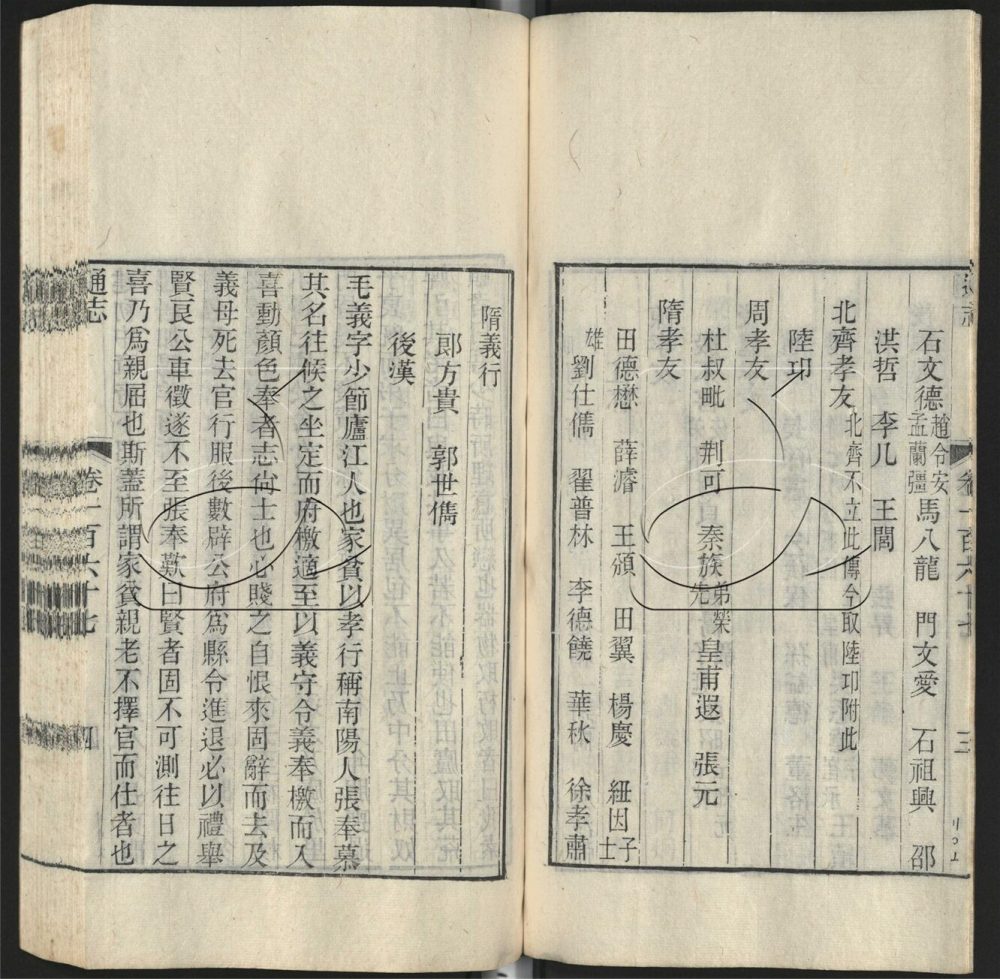 石文德趙令安孟蘭彊馬八龍 門文愛 石祖興 邵
洪哲 李几 王閭
北齊孝友北齊不立此傳今取陸卭附此
陸卭
周孝友
杜叔毗 荆可 秦族弟榮先皇甫遐 張元
隋孝友
田德懋 薛濬 王頒 田翼 楊慶 紐因子士
雄劉仕儁 翟普林 李德饒 華秋 徐孝肅
卷一百六十七
三
隋義行
郎方貴 郭世儁
後漢
毛義字少節廬江人也家貧以孝行稱南陽人張奉慕
其名往候之坐定而府檄適至以義守令義奉檄而入
喜動顏色奉者志尙士也心賤之自恨來固辭而去及
義母死去官行服後數辟公府爲縣令進退必以禮舉
賢良公車徵遂不至張奉歎曰賢者固不可測往日之
喜乃爲親屈也斯蓋所謂家貧親老不擇官而仕者也
通志
卷一百六十七
四